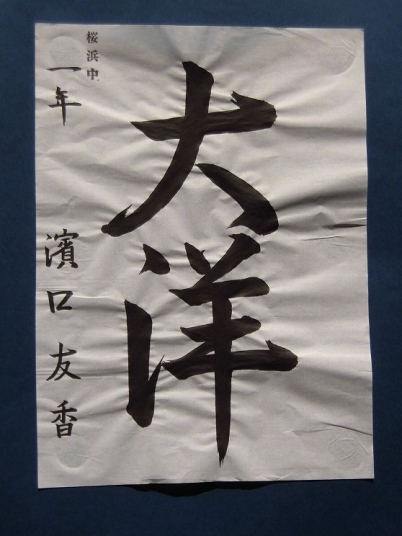 大洋
桜浜中
一年 濱口友香